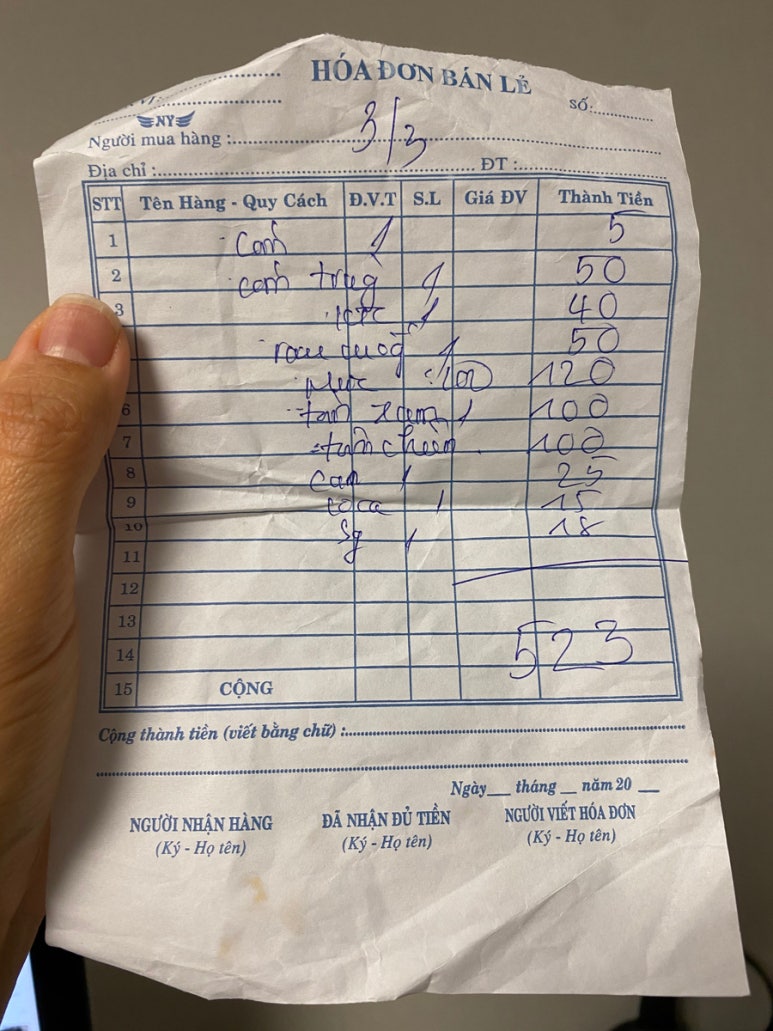 HÓA ĐƠN BÁN LẺ
Số:
NY
Người mua hàng : 3/3
Địa chỉ : ĐT :
STT Tên Hàng - Quy Cách Đ.V.T S.L Giá ĐV Thành Tiền
1 Canh 1 5
2 canh trứng 1 50
3 1 40
rau 1 50
Mực 120
6 1 100
7 100
8 1 25
9 coca 1 15
10 Sg 1 18
11
12
13
14 523
15 CỘNG
Cộng thành tiền (viết bằng chữ) :
Ngày tháng năm 20
NGƯỜI NHẬN HÀNG ĐÃ NHẬN ĐỦ TIỀN NGƯỜI VIẾT HÓA ĐƠN
(Ký - Họ tên) (Ký - Họ tên) (Ký - Họ tên)